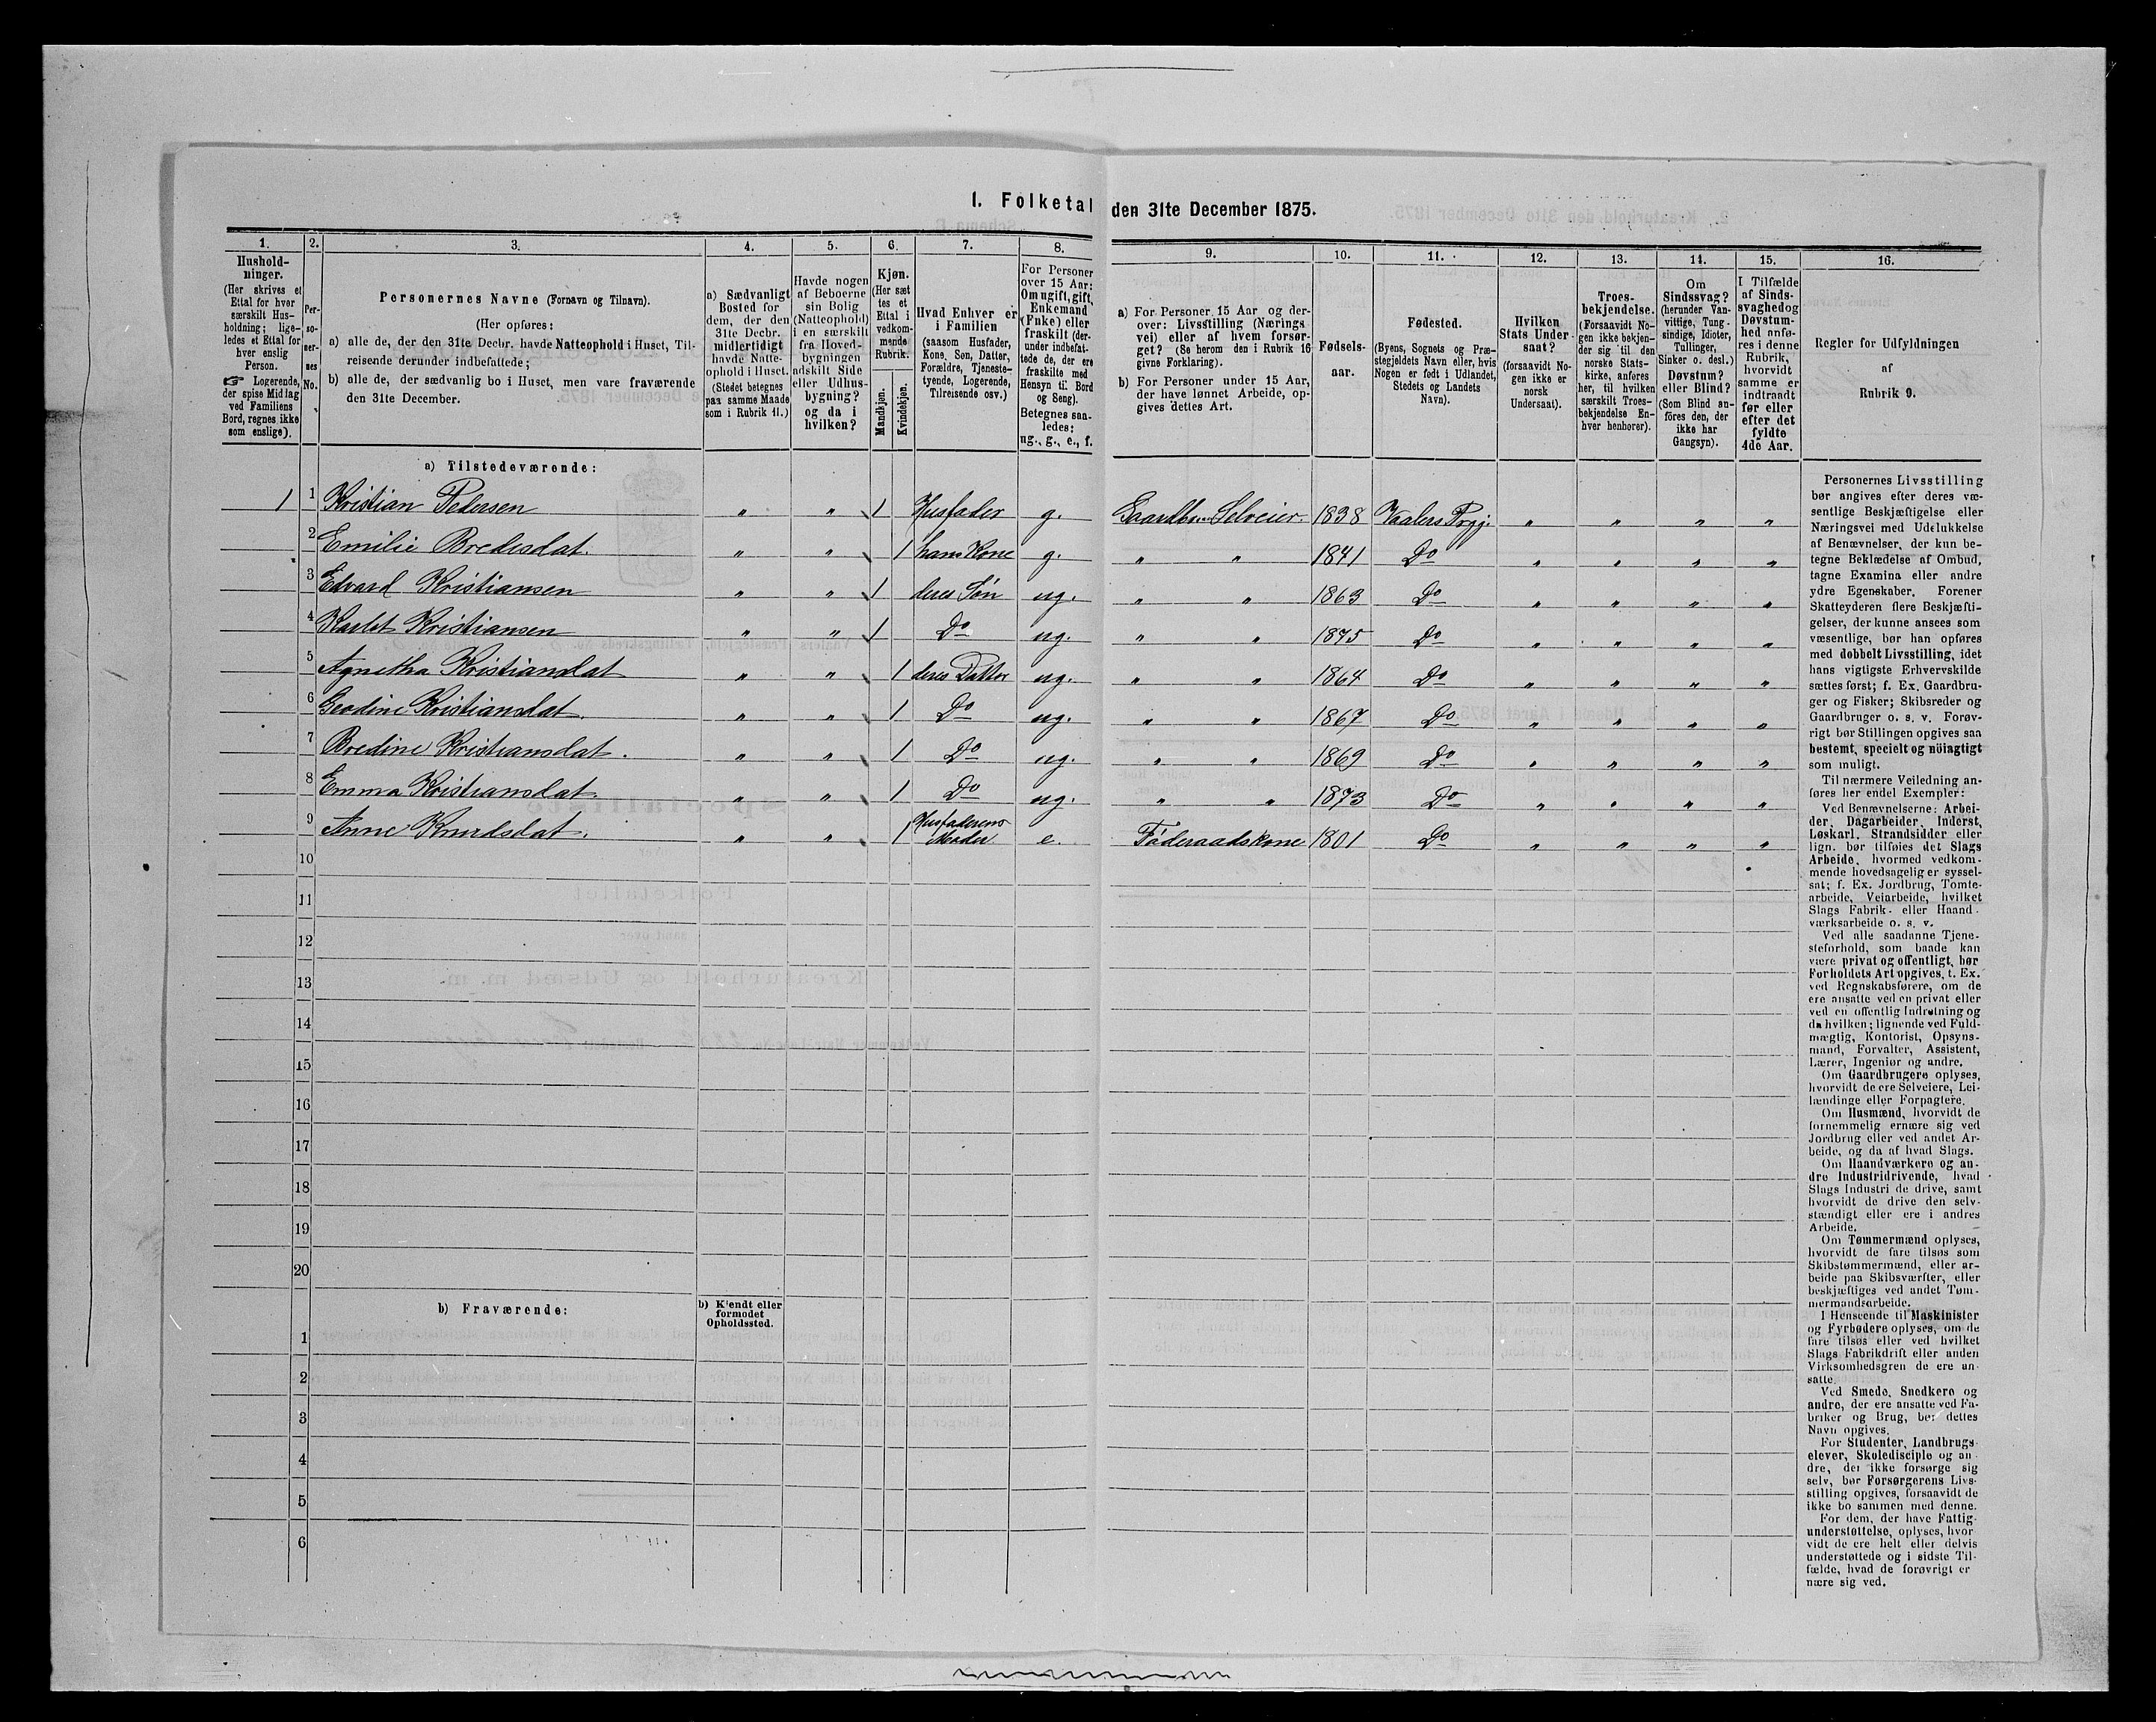 1. Folketal den 31te December 1875.
1. 2. 3. 4. 5. 6. 7. 8. 9. 10. 11. 12. 13. 14. 15. 16.
Hushold-
ninger.
(Her skrives et
Ettal for hver
særskilt Hus-
holdning; lige-
ledes et Ettal for
hver enslig
Person.
☞ Logerende,
der spise Middag
ved Familiens
Bord, regnes ikke
som enslige).
Per-
so-
ner-
nes
No.
Personernes Navne (Fornavn og Tilnavn).
(Her opføres:
a) alle de, der den 31te Decbr. havde Natteophold i Huset, Til-
reisende derunder indbefattede;
b) alle de, der sædvanlig bo i Huset, men vare fraværende
den 31te December.
a) Sædvanligt
Bosted for
dem, der den
31te Decbr.
midlertidigt
havde Natte-
ophold i Huset.
(Stedet betegnes
paa samme Maade
som i Rubrik 11.)
Havde nogen
af Beboerne
sin Bolig
(Natteophold)
i en særskilt
fra Hoved-
bygningen
adskilt Side
eller Udhus-
bygning?
og da i
hvilken?
Kjøn.
(Her sæt
tes et
Ettal i
vedkom-
mende
Rubrik.
Mandkjøn.
Kvindekjøn.
Hvad Enhver er
i Familien
(saasom Husfader,
Kone, Søn, Datter,
Forældre, Tjeneste-
tyende, Logerende,
Tilreisende osv.)
For Personer
over 15 Aar:
Om ugift, gift,
Enkemand
(Enke) eller
fraskilt (der-
under indbefat-
tede de, der ere
fraskilte med
Hensyn til Bord
og Seng).
Betegnes saa-
ledes:
ug., g., e., f.
a) For Personer 15 Aar og der-
over: Livsstilling (Nærings
vei) eller af hvem forsør-
get? (Se herom den i Rubrik 16
givne Forklaring).
b) For Personer under 15 Aar,
der have lønnet Arbeide, op-
gives dettes Art.
Fødsels-
aar.
Fødested.
(Byens, Sognets og Præ-
stegjeldets Navn eller, hvis
Nogen er født i Udlandet,
Stedets og Landets
Navn).
Hvilken
Stats Under-
saat?
(forsaavidt No-
gen ikke er
norsk
Undersaat).
Troes-
bekjendelse.
(Forsaavidt No-
gen ikke bekjen-
der sig til den
norske Stats-
kirke, anføres
her, til hvilken
særskilt Troes-
bekjendelse En-
hver henhører).
Om
Sindssvag?
(herunder Van-
vittige, Tung-
sindige, Idioter,
Tullinger,
Sinker o. desl.)
Døvstum?
eller Blind?
(Som Blind an-
føres den, der
ikke har
Gangsyn).
I Tilfælde
af Sinds-
svaghed og
Døvstum-
hed anfø-
res i denne
Rubrik,
hvorvidt
samme er
indtraadt
før eller
efter det
fyldte
4de Aar.
Regler for Udfyldningen
af
Rubrik 9.
a) Tilstedeværende:
1 1 Kristian Pedersen " " 1 Husfader g. Gaardbr. Selveier. 1838 Vaalers Prgj. " " " "
2 Emilie Bredesdat. " " 1 hans Kone g. " " 1841 Do " " " "
3 Edvard Kristiansen " " 1 deres Søn ug. " " 1863 Do " " " "
4 Karlot Kristiansen " " 1 Do ug. " " 1875 Do " " " "
5 Agnetha Kristiansdat " " 1 deres Datter ug. " " 1864 Do " " " "
6 Gerdine Kristiansdat. " " 1 Do ug. " " 1867 Do " " " "
7 Bredine Kristiansdat. " " 1 Do ug. " " 1869 Do " " " "
8 Emma Kristiansdat. " " 1 Do ug. " " 1873 Do " " " "
9 Anne Knudsdat. " " 1 Husfaderens Moder. e. Føderaadskone 1801 Do " " " "
10
11
12
13
14
15
16
17
18
19
20
b) Fraværende:
b) Kjendt eller
formodet
Opholdssted.
1
2
3
4
5
6
Personernes Livsstilling
bør angives efter deres væ-
sentlige Beskjæftigelse eller
Næringsvei med Udelukkelse
af Benævnelser, der kun be-
tegne Beklædelse af Ombud,
tagne Examina eller andre
ydre Egenskaber. Forener
Skatteyderen flere Beskjæfti-
gelser, der kunne ansees som
væsentlige, bør han opføres
med dobbelt Livsstilling, idet
hans vigtigste Erhvervskilde
sættes først; f. Ex. Gaardbru-
ger og Fisker; Skibsreder og
Gaardbruger o. s. v. Forøv-
rigt bør Stillingen opgives saa
bestemt, specielt og nöiagtigt
som muligt.
Til nærmere Veiledning an-
føres her endel Exempler:
Ved Benævnelserne: Arbei-
der, Dagarbeider, Inderst,
Løskarl, Strandsidder eller
lign. bør tilføies det Slags
Arbeide, hvormed vedkom-
mende hovedsagelig er syssel-
sat; f. Ex. Jordbrug, Tomte-
arbeide, Veiarbeide, hvilket
Slags Fabrik- eller Haand-
værksarbeide o. s. v.
Ved alle saadanne Tjene-
steforhold, som baade kan
være privat og offentligt, bør
Forholdets Art opgives, t. Ex.
ved Regnskabsførere, om de
ere ansatte ved en privat eller
ved en offentlig Indretning og
da hvilken; lignende ved Fuld-
mægtig, Kontorist, Opsyns-
mand, Forvalter, Assistent,
Lærer, Ingeniør og andre.
Om Gaardbrugere oplyses,
hvorvidt de ere Selveiere, Lei-
lændinge eller Forpagtere.
Om Husmænd, hvorvidt de
fornemmelig ernære sig ved
Jordbrug eller ved andet Ar-
beide, og da af hvad Slags.
Om Haandværkere og an-
dre Industridrivende, hvad
Slags Industri de drive, samt
hvorvidt de drive den selv-
stændigt eller ere i andres
Arbeide.
Om Tømmermænd oplyses,
hvorvidt de fare tilsøs som
Skibstømmermænd, eller ar-
beide paa Skibsværfter, eller
beskjæftiges ved andet Tøm-
mermandsarbeide.
I Henseende til Maskinister
og Fyrbødere oplyses, om de
fare tilsøs eller ved hvilket
Slags Fabrikdrift eller anden
Virksomhedsgren de ere an-
satte.
Ved Smede, Snedkere og
andre, der ere ansatte ved Fa-
briker og Brug, bør dettes
Navn opgives.
For Studenter, Landbrugs-
elever, Skoledisciple og an-
dre, der ikke forsørge sig
selv, bør Forsørgerens Livs-
stilling opgives, forsaavidt de
ikke bo sammen med denne.
For dem, der have Fattig-
understøttelse, oplyses, hvor-
vidt de ere helt eller delvis
understøttede og i sidste Til-
fælde, hvad de forøvrigt er-
nære sig ved.